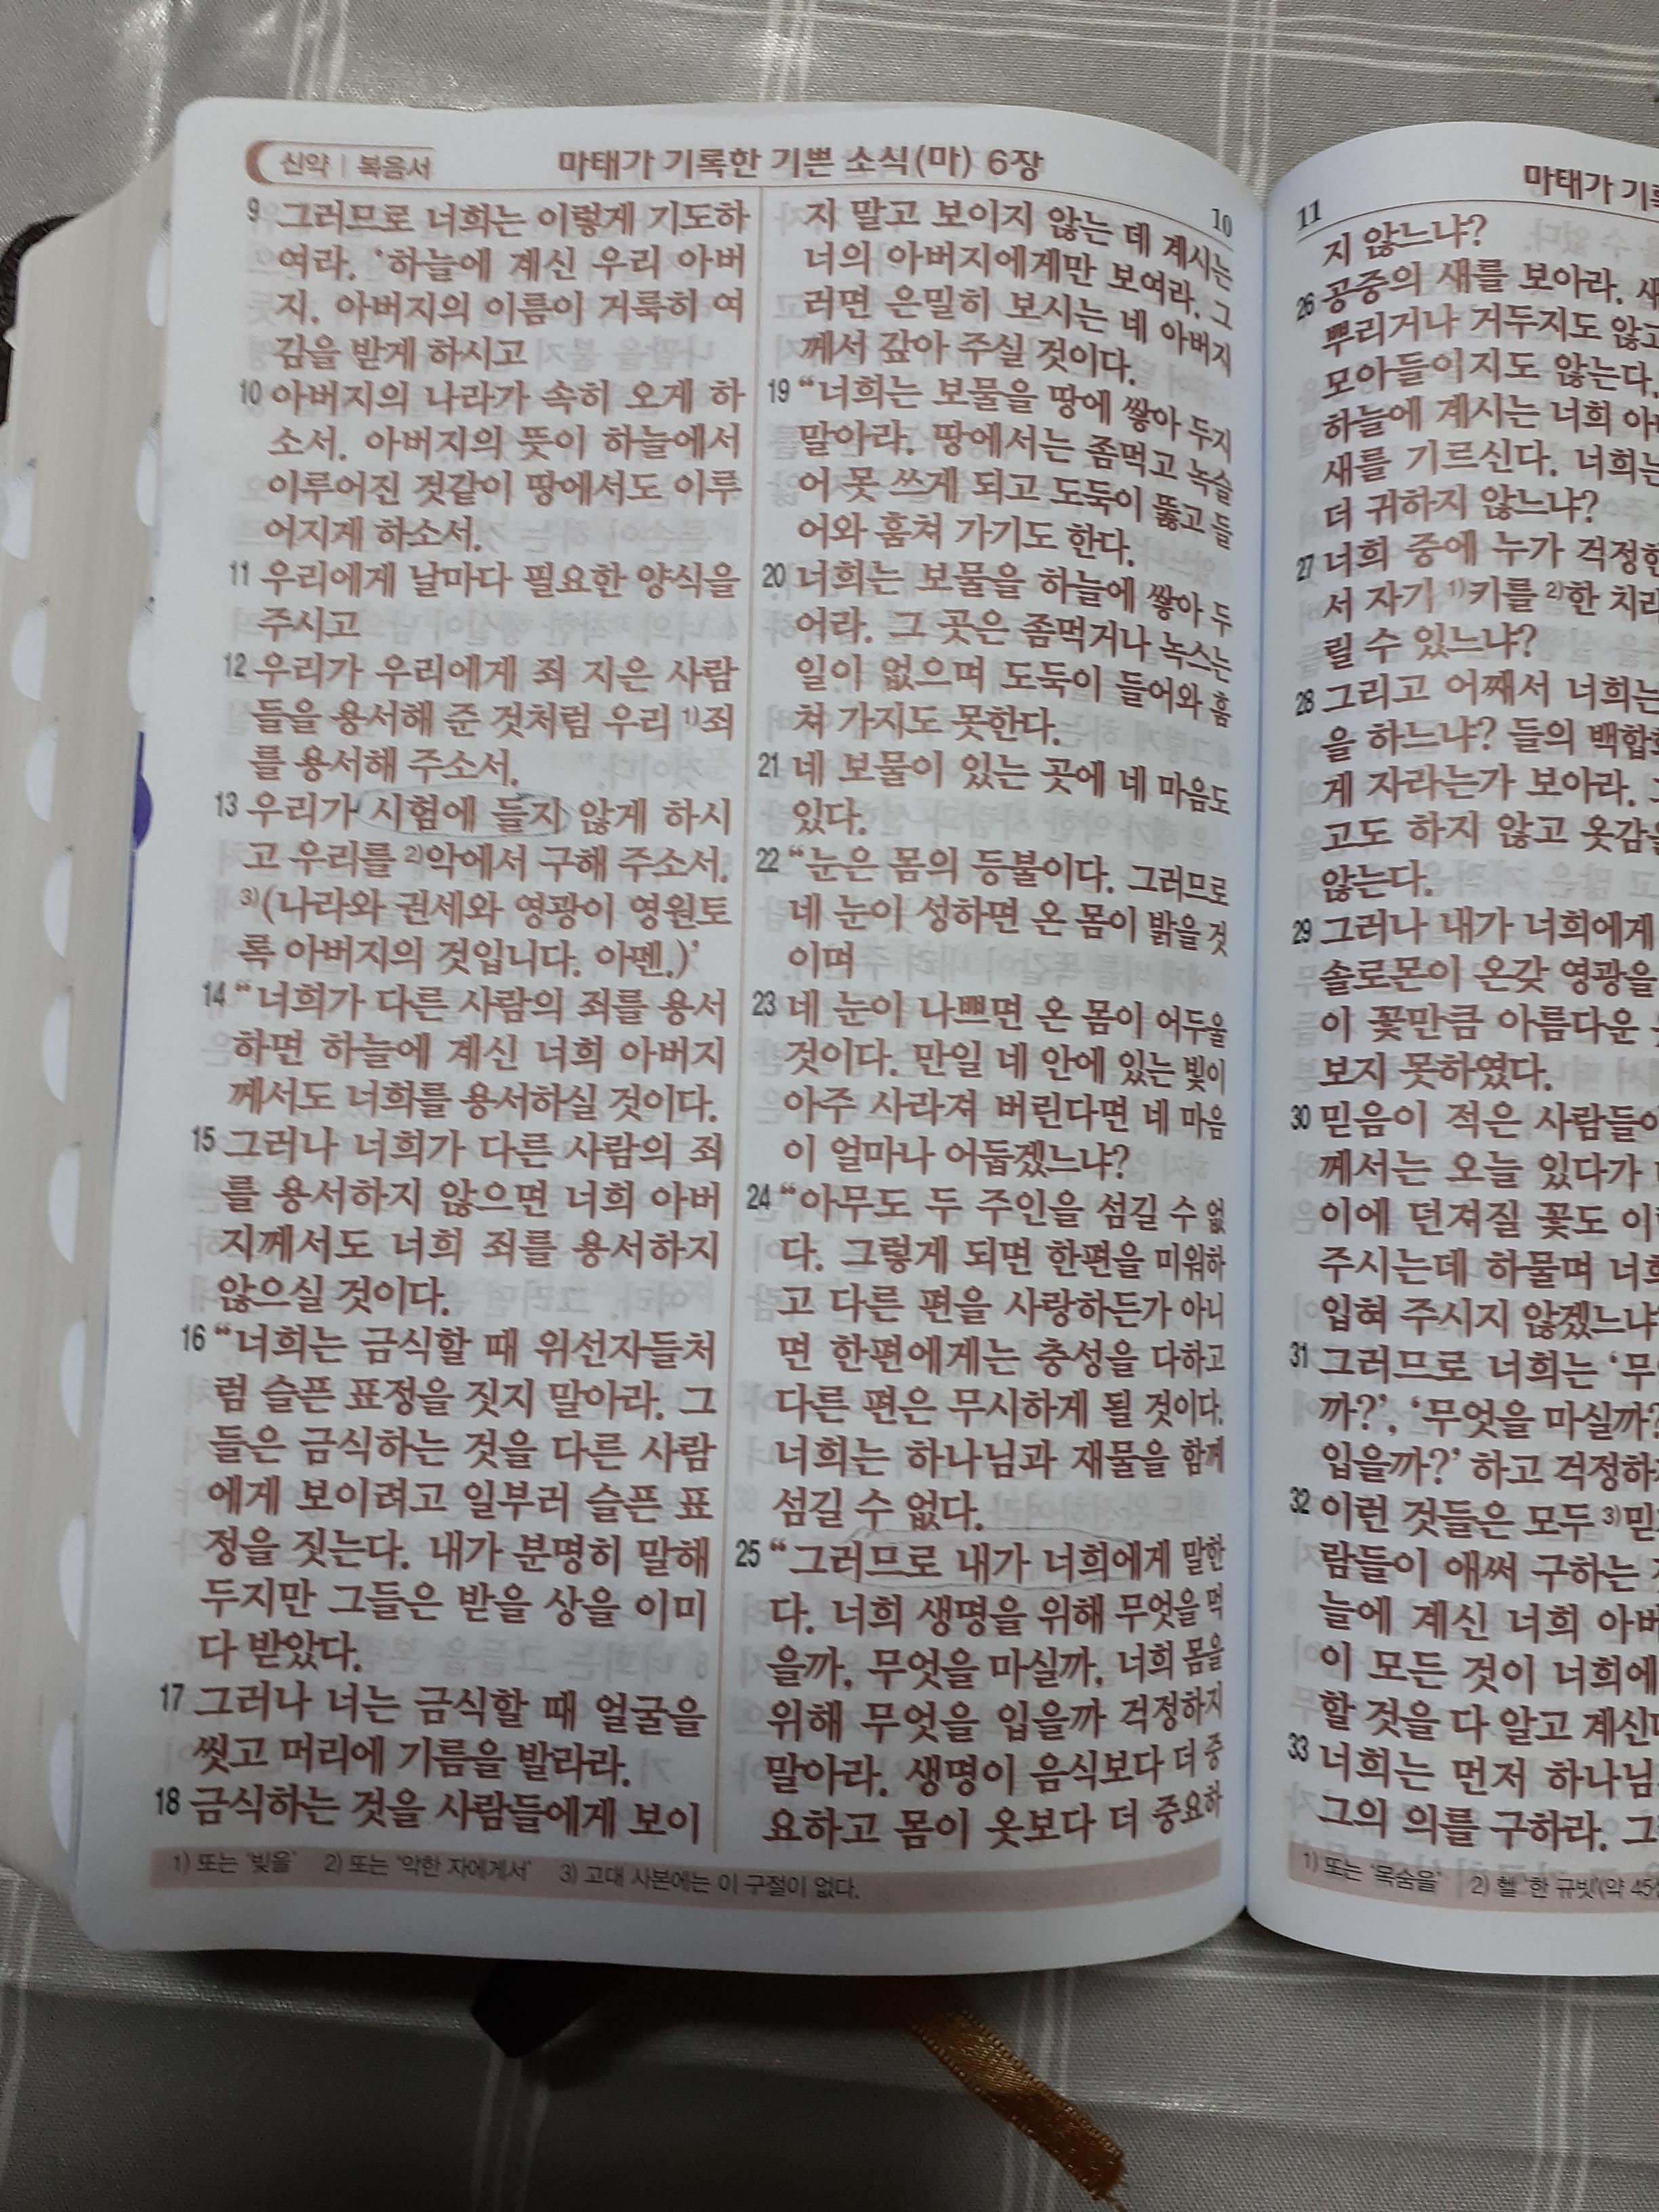 신약 | 복음서
마태가 기록한 기쁜 소식(마) 6장
10
9 그러므로 너희는 이렇게 기도하
여라. ‘하늘에 계신 우리 아버
지. 아버지의 이름이 거룩히 여
김을 받게 하시고
10 아버지의 나라가 속히 오게 하
소서. 아버지의 뜻이 하늘에서
이루어진 것같이 땅에서도 이루
어지게 하소서.
11 우리에게 날마다 필요한 양식을
주시고
12 우리가 우리에게 죄 지은 사람
들을 용서해 준 것처럼 우리 1)죄
를 용서해 주소서.
13 우리가 시험에 들지 않게 하시
고 우리를 2)악에서 구해 주소서.
3)(나라와 권세와 영광이 영원토
록 아버지의 것입니다. 아멘.)’
14 “너희가 다른 사람의 죄를 용서
하면 하늘에 계신 너희 아버지
께서도 너희를 용서하실 것이다.
15 그러나 너희가 다른 사람의 죄
를 용서하지 않으면 너희 아버
지께서도 너희 죄를 용서하지
않으실 것이다.
16 “너희는 금식할 때 위선자들처
럼 슬픈 표정을 짓지 말아라. 그
들은 금식하는 것을 다른 사람
에게 보이려고 일부러 슬픈 표
정을 짓는다. 내가 분명히 말해
두지만 그들은 받을 상을 이미
다 받았다.
17 그러나 너는 금식할 때 얼굴을
씻고 머리에 기름을 발라라.
18 금식하는 것을 사람들에게 보이
지 말고 보이지 않는 데 계시는
너의 아버지에게만 보여라. 그
러면 은밀히 보시는 네 아버지
께서 갚아 주실 것이다.
19 “너희는 보물을 땅에 쌓아 두지
말아라. 땅에서는 좀먹고 녹슬
어 못 쓰게 되고 도둑이 뚫고 들
어와 훔쳐 가기도 한다.
20 너희는 보물을 하늘에 쌓아 두
어라. 그 곳은 좀먹거나 녹스는
일이 없으며 도둑이 들어와 훔
쳐 가지도 못한다.
21 네 보물이 있는 곳에 네 마음도
있다.
22 “눈은 몸의 등불이다. 그러므로
네 눈이 성하면 온 몸이 밝을 것
이며
23 네 눈이 나쁘면 온 몸이 어두울
것이다. 만일 네 안에 있는 빛이
아주 사라져 버린다면 네 마음
이 얼마나 어둡겠느냐?
24 “아무도 두 주인을 섬길 수 없
다. 그렇게 되면 한편을 미워하
고 다른 편을 사랑하든가 아니
면 한편에게는 충성을 다하고
다른 편은 무시하게 될 것이다.
너희는 하나님과 재물을 함께
섬길 수 없다.
25 “그러므로 내가 너희에게 말한
다. 너희 생명을 위해 무엇을 먹
을까, 무엇을 마실까, 너희 몸을
위해 무엇을 입을까 걱정하지
말아라. 생명이 음식보다 더 중
요하고 몸이 옷보다 더 중요하
1) 또는 ‘빚을’ 2) 또는 ‘악한 자에게서’ 3) 고대 사본에는 이 구절이 없다.
11
마태가 기록
지 않느냐?
26 공중의 새를 보아라. 새
뿌리거나 거두지도 않고
모아들이지도 않는다.
하늘에 계시는 너희 아
새를 기르신다. 너희는
더 귀하지 않느냐?
27 너희 중에 누가 걱정한
서 자기 1)키를 2)한 치라
릴 수 있느냐?
28 그리고 어째서 너희는
을 하느냐? 들의 백합
게 자라는가 보아라.
고도 하지 않고 옷감을
않는다.
29 그러나 내가 너희에게
솔로몬이 온갖 영광을
이 꽃만큼 아름다운
보지 못하였다.
30 믿음이 적은 사람들
께서는 오늘 있다가
이에 던져질 꽃도 이
주시는데 하물며 너희
입혀 주시지 않겠느냐
31 그러므로 너희는 ‘무
까?’, ‘무엇을 마실까?
입을까?’ 하고 걱정하
32 이런 것들은 모두 3)믿
람들이 애써 구하는
늘에 계신 너희 아버
이 모든 것이 너희에
할 것을 다 알고 계신
33 너희는 먼저 하나님
그의 의를 구하라. 그
1) 또는 ‘목숨을’ 2) 헬 ‘한 규빗’(약 45